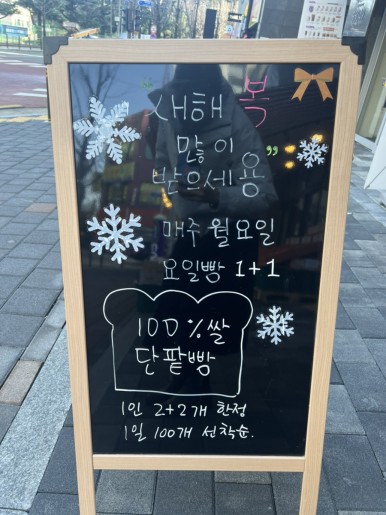 "새해 복
많이
받으세용"
매주 월요일
요일빵 1+1
100%쌀
단팥빵
1인 2+2개 한정
1일 100개 선착순.